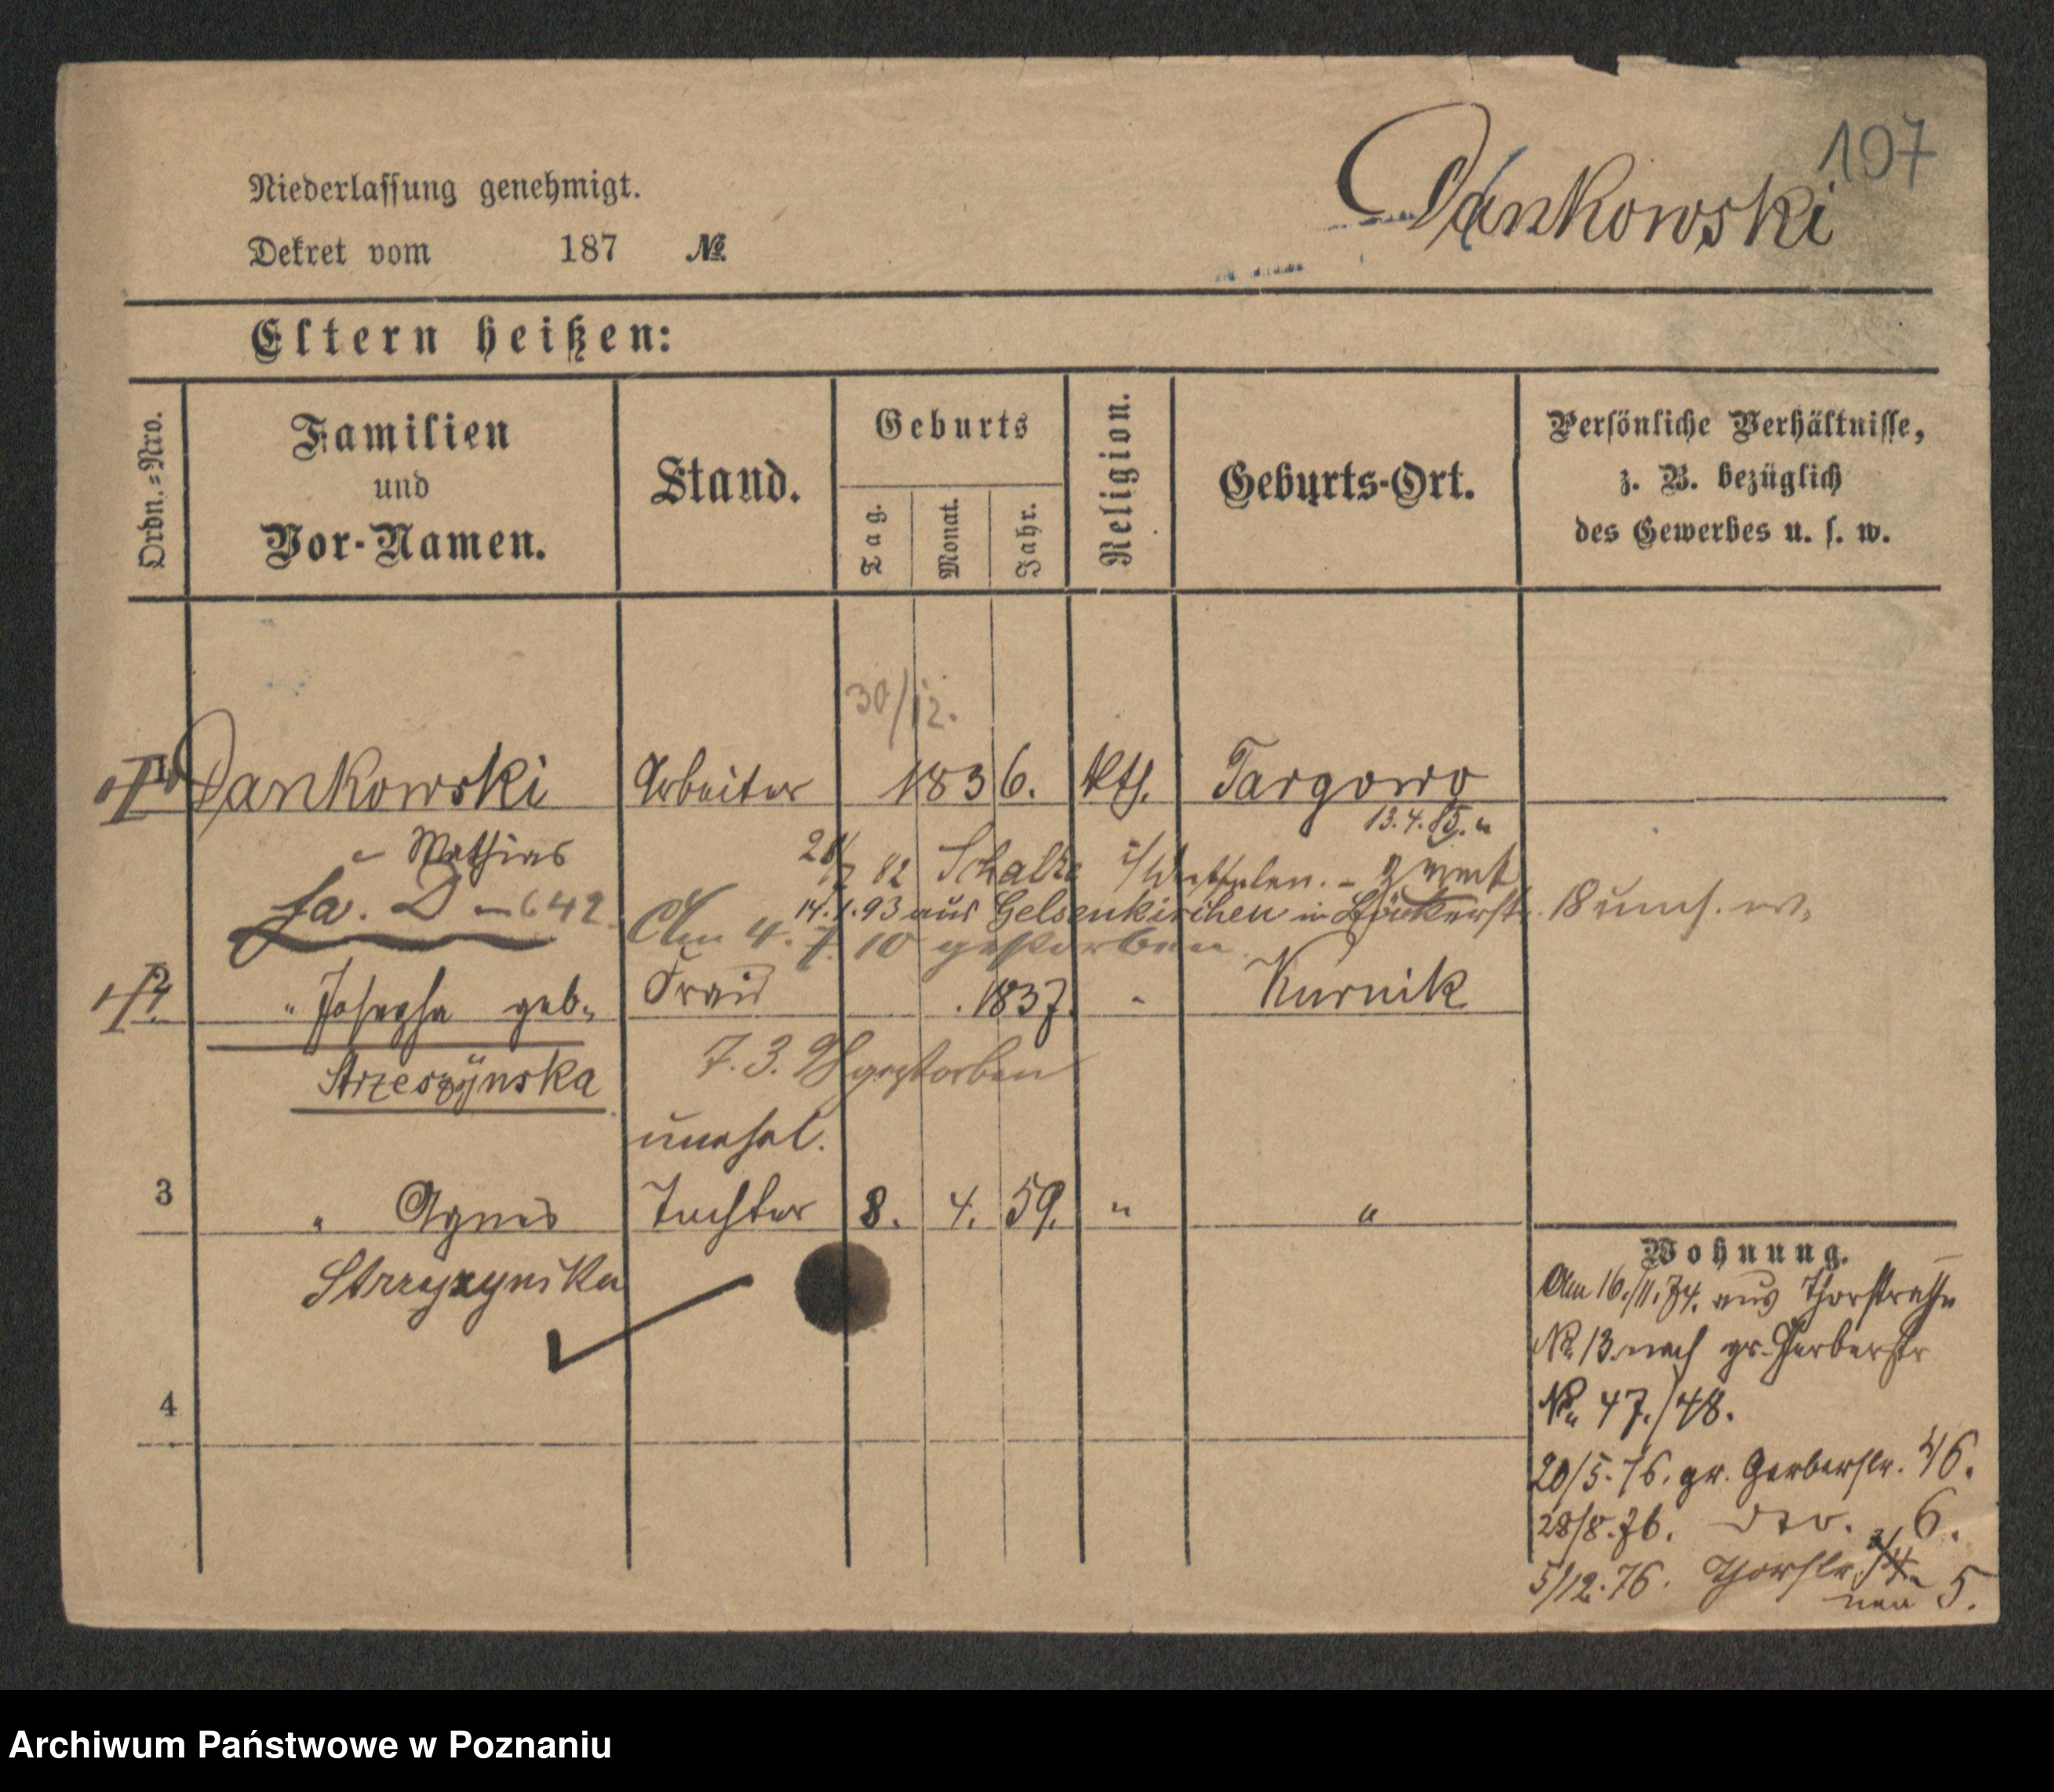 107
Dankowski
Niederlassung genehmigt.
Dekret vom 187 №
Eltern heißen:
Ordn.=Nro.
Familien
und
Vor-Namen.
Stand.
Geburts
Tag.
Monat.
Jahr.
Religion.
Geburts-Ort.
Persönliche Verhältnisse,
z. B. bezüglich
des Gewerbes u. s. w.
30/12.
1 Dankowski Arbeiter 1836. kth. Targowo
13.4.85.
" Mathias
82 Schalke i/Westfalen. -
fa. D 642.
14.1.93 aus Gelsenkirchen in 18 w.
Am 4. 7. 10 gestorben
2 " Josepha geb. Frau 1837. " Kurnik
Strzeszÿnska
7. 3. gestorben
unehel.
3 " Agnes Tochter 8. 4. 59. " "
Strzyzynska
4
Wohnung.
Am 16./11.74. aus Thorstraße
No 13 nach gr. Gerberstr
No 47./48.
20/5.76. gr. Gerberstr. 46.
28/8.76. dto. 6.
5/12.76. Thorstr. 
neu 5.
Archiwum Państwowe w Poznaniu